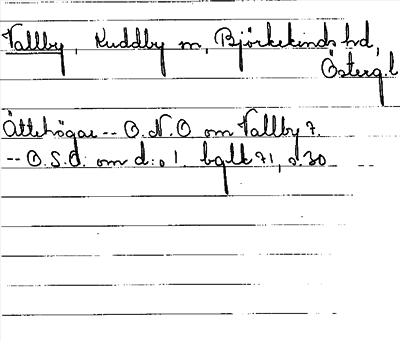 Vallby, Kuddby sn, Björkekinds hd,
Österg.l
Ättehögar -- O.N.O om Vallby 7.
-- O.S.O. om d:o 1. bgll 71, s.30